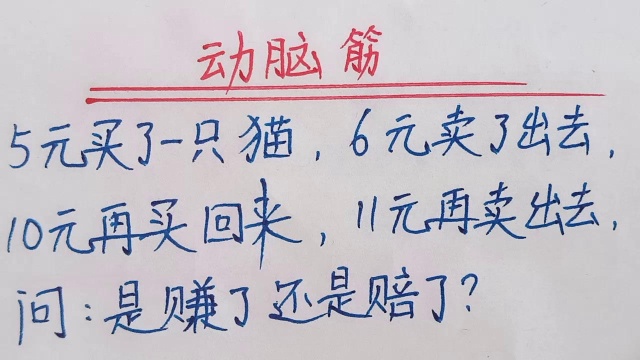 动脑筋
5元买了一只猫，6元卖了出去，
10元再买回来，11元再卖出去，
问：是赚了还是赔了？